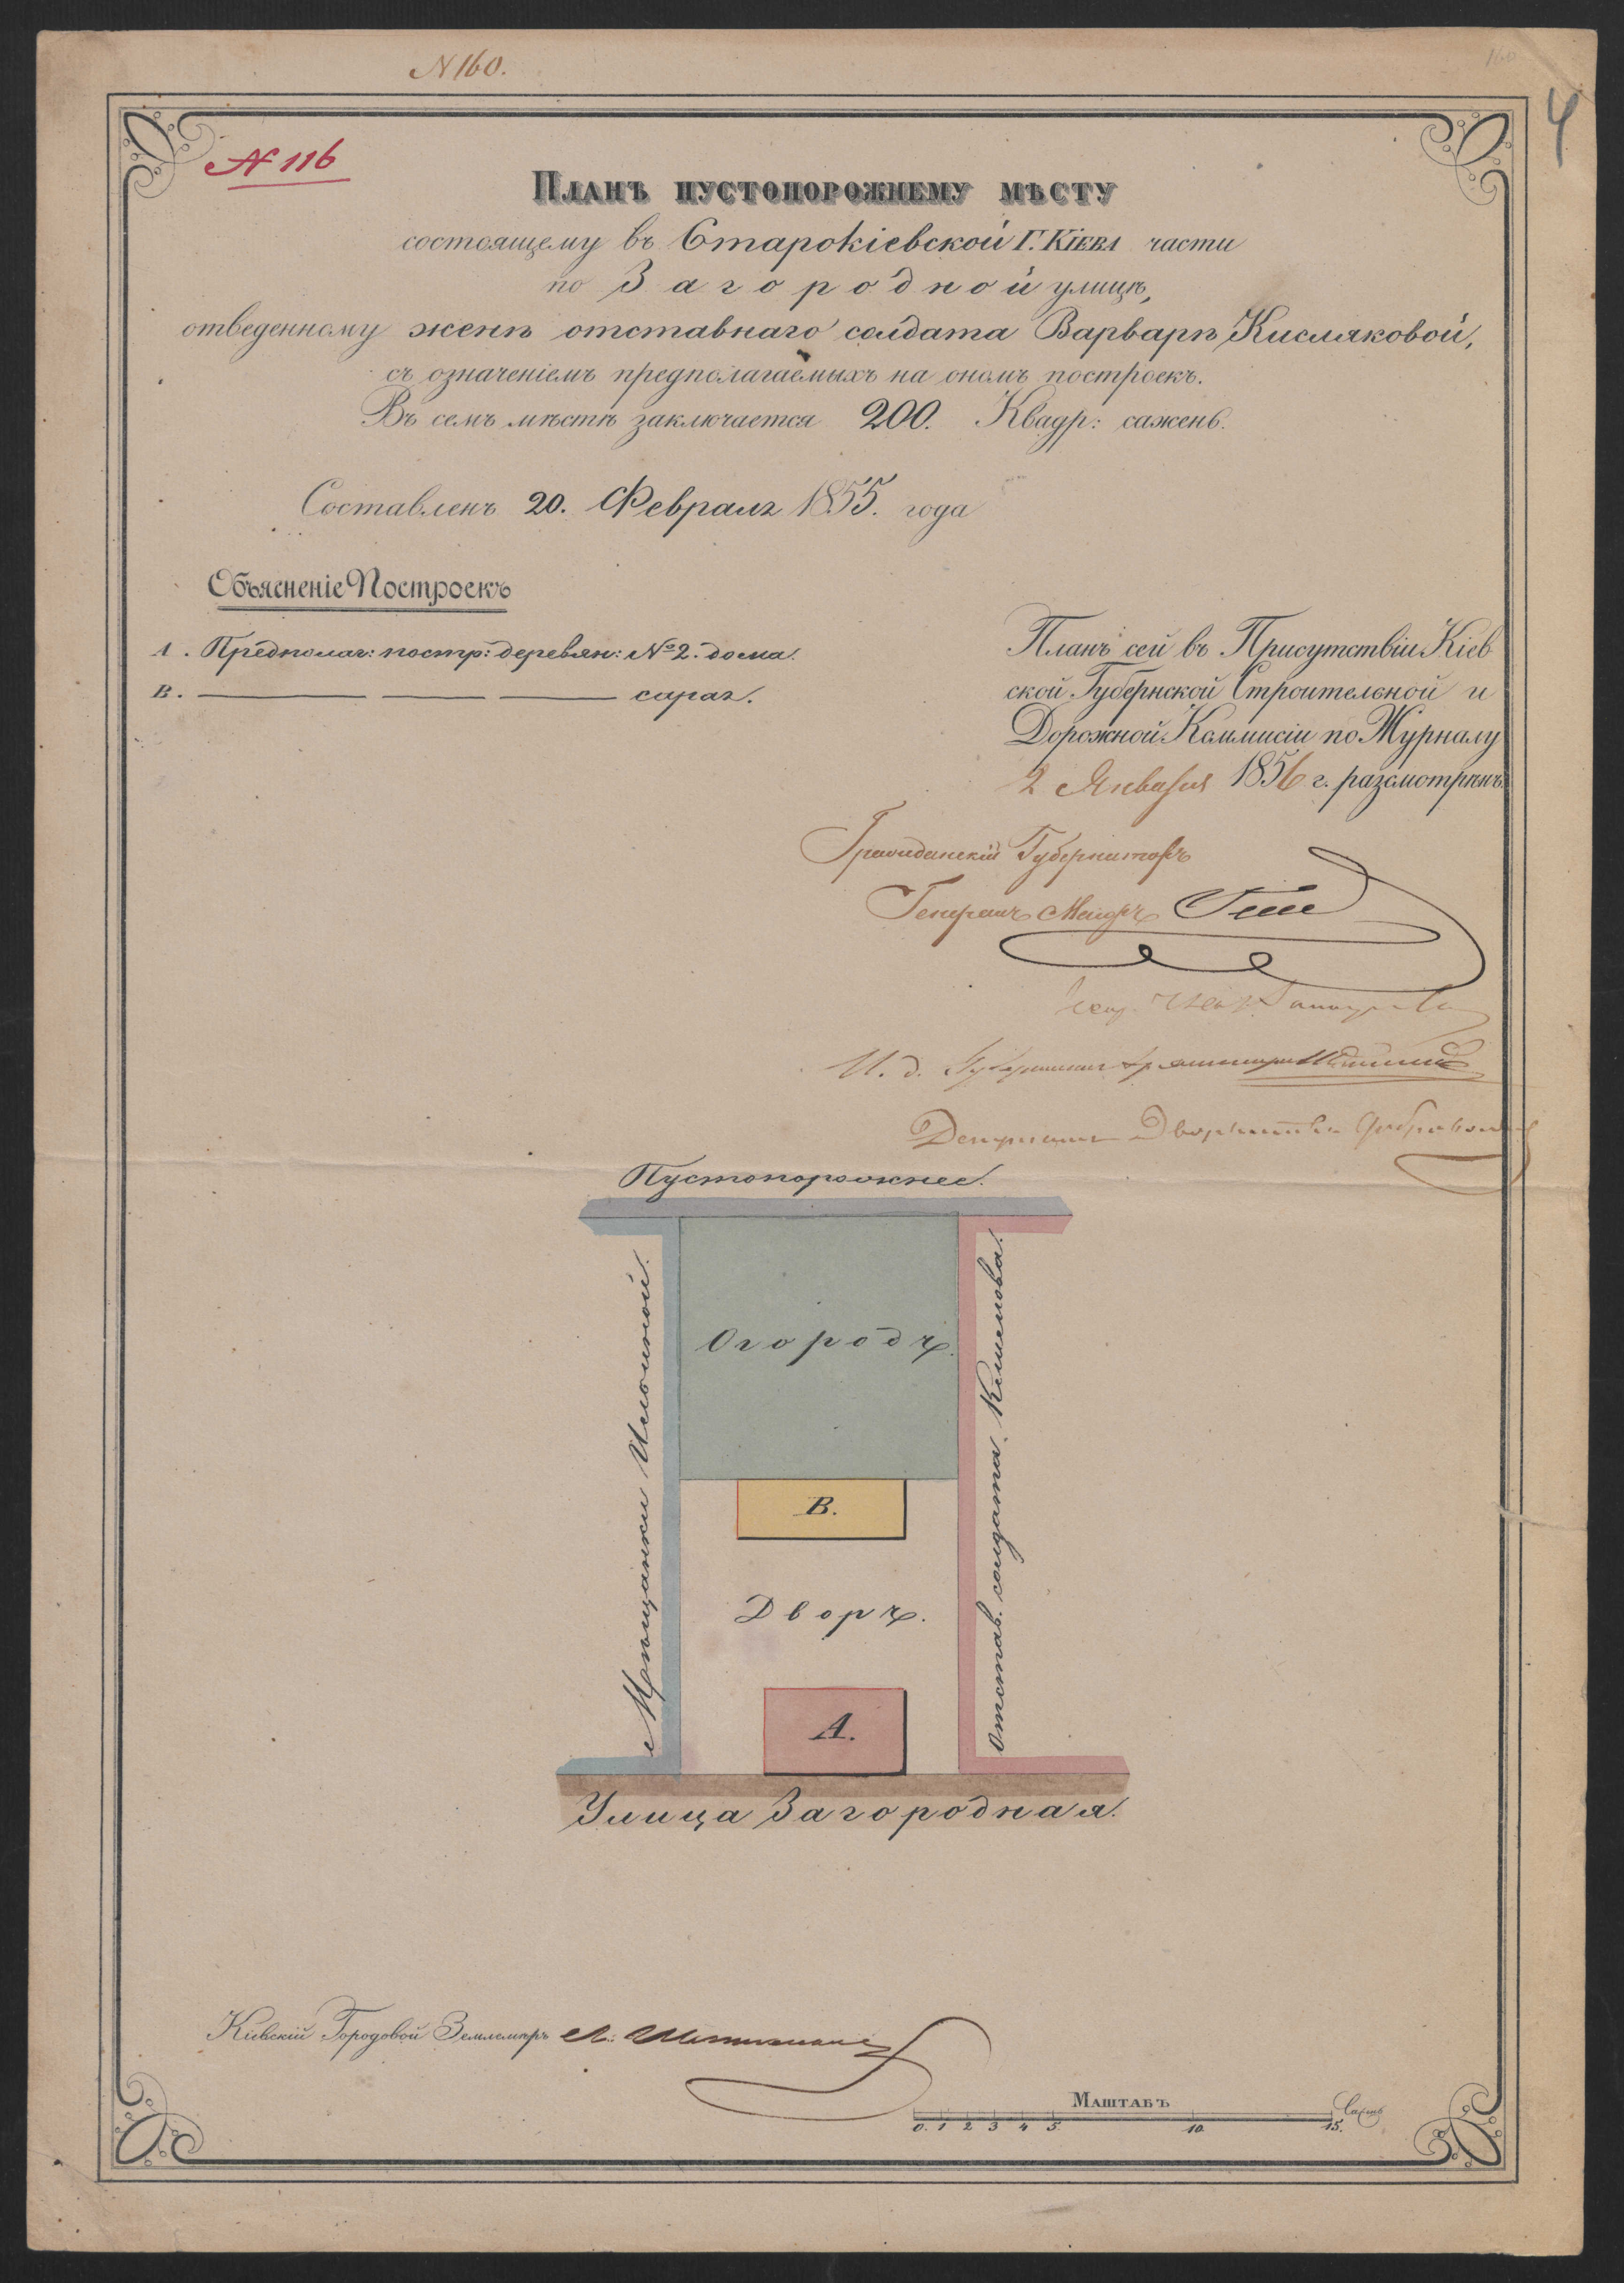 N 160.
160
4
N 116
Планъ пустопорожнему мѣсту
состоящему въ Старокіевской Г. Кіева части
по Загородной улицѣ,
отведенному женѣ отставнаго солдата Варварѣ Кисляковой,
съ означеніемъ предполагаемыхъ на ономъ построекъ.
Въ семъ мѣстѣ заключается 200. Квадр: сажень.
Составленъ 20. Февраля 1855. года
Объясненіе Построекъ
А. Предполаг: постр: деревян: № 2. дома.
В. сарая.
Планъ сей въ Присутствіи Кіев
ской Губернской Строительной и
Дорожной Коммисіи по Журналу
2 Января 1856 г. разсмотрѣнъ
Гражданскій Губернаторъ
Генералъ Маіоръ Гессе
И. д.
Дворянства
Пустопорожнее.
Мѣщанки Ильиной.
Огородъ.
Отстав. солдата
В.
Дворъ.
А.
Улица Загородная.
Кіевскій Городовой Землемѣръ
Маштабъ
0. 1 2 3 4 5 10 15. Саженъ